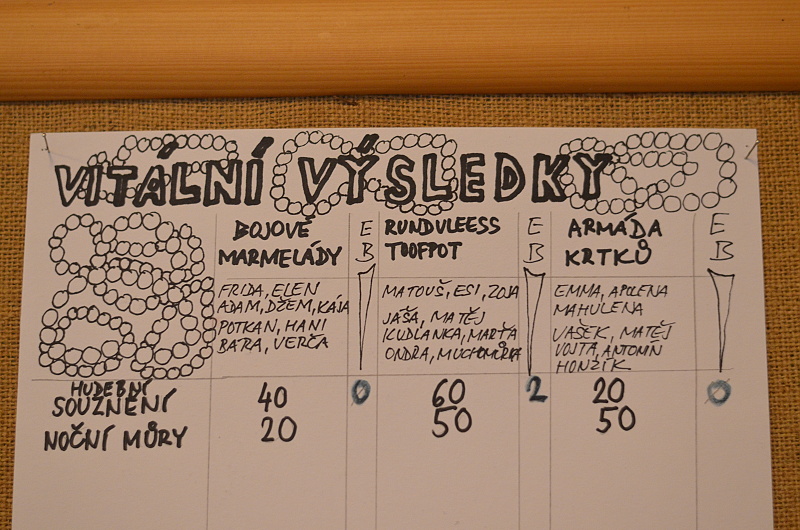 VITÁLNÍ VÝSLEDKY
BOJOVÉ MARMELÁDY
EB
RUNDVLEESS TOOFPOT
EB
ARMÁDA KRTKŮ
EB
FRIDA, ELEN
ADAM, DŽEM, KÁJA
POTKAN, HANI
BÁRA, VERČA
MATOUŠ, ESI, ZOJA
JÁŠA, MATĚJ
KUDLANKA, MARŤA
ONDRA, MUCHOMŮRKA
EMMA, APOLENA
MAHULENA
VAŠEK, MATĚJ
VOJTA, ANTONÍN
HONZÍK
HUDEBNÍ
SOUZNĚNÍ 40 0 60 2 20 0
NOČNÍ MŮRY 20 50 50